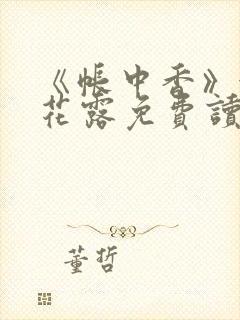 《帳中香》
花露免費讀
董哲